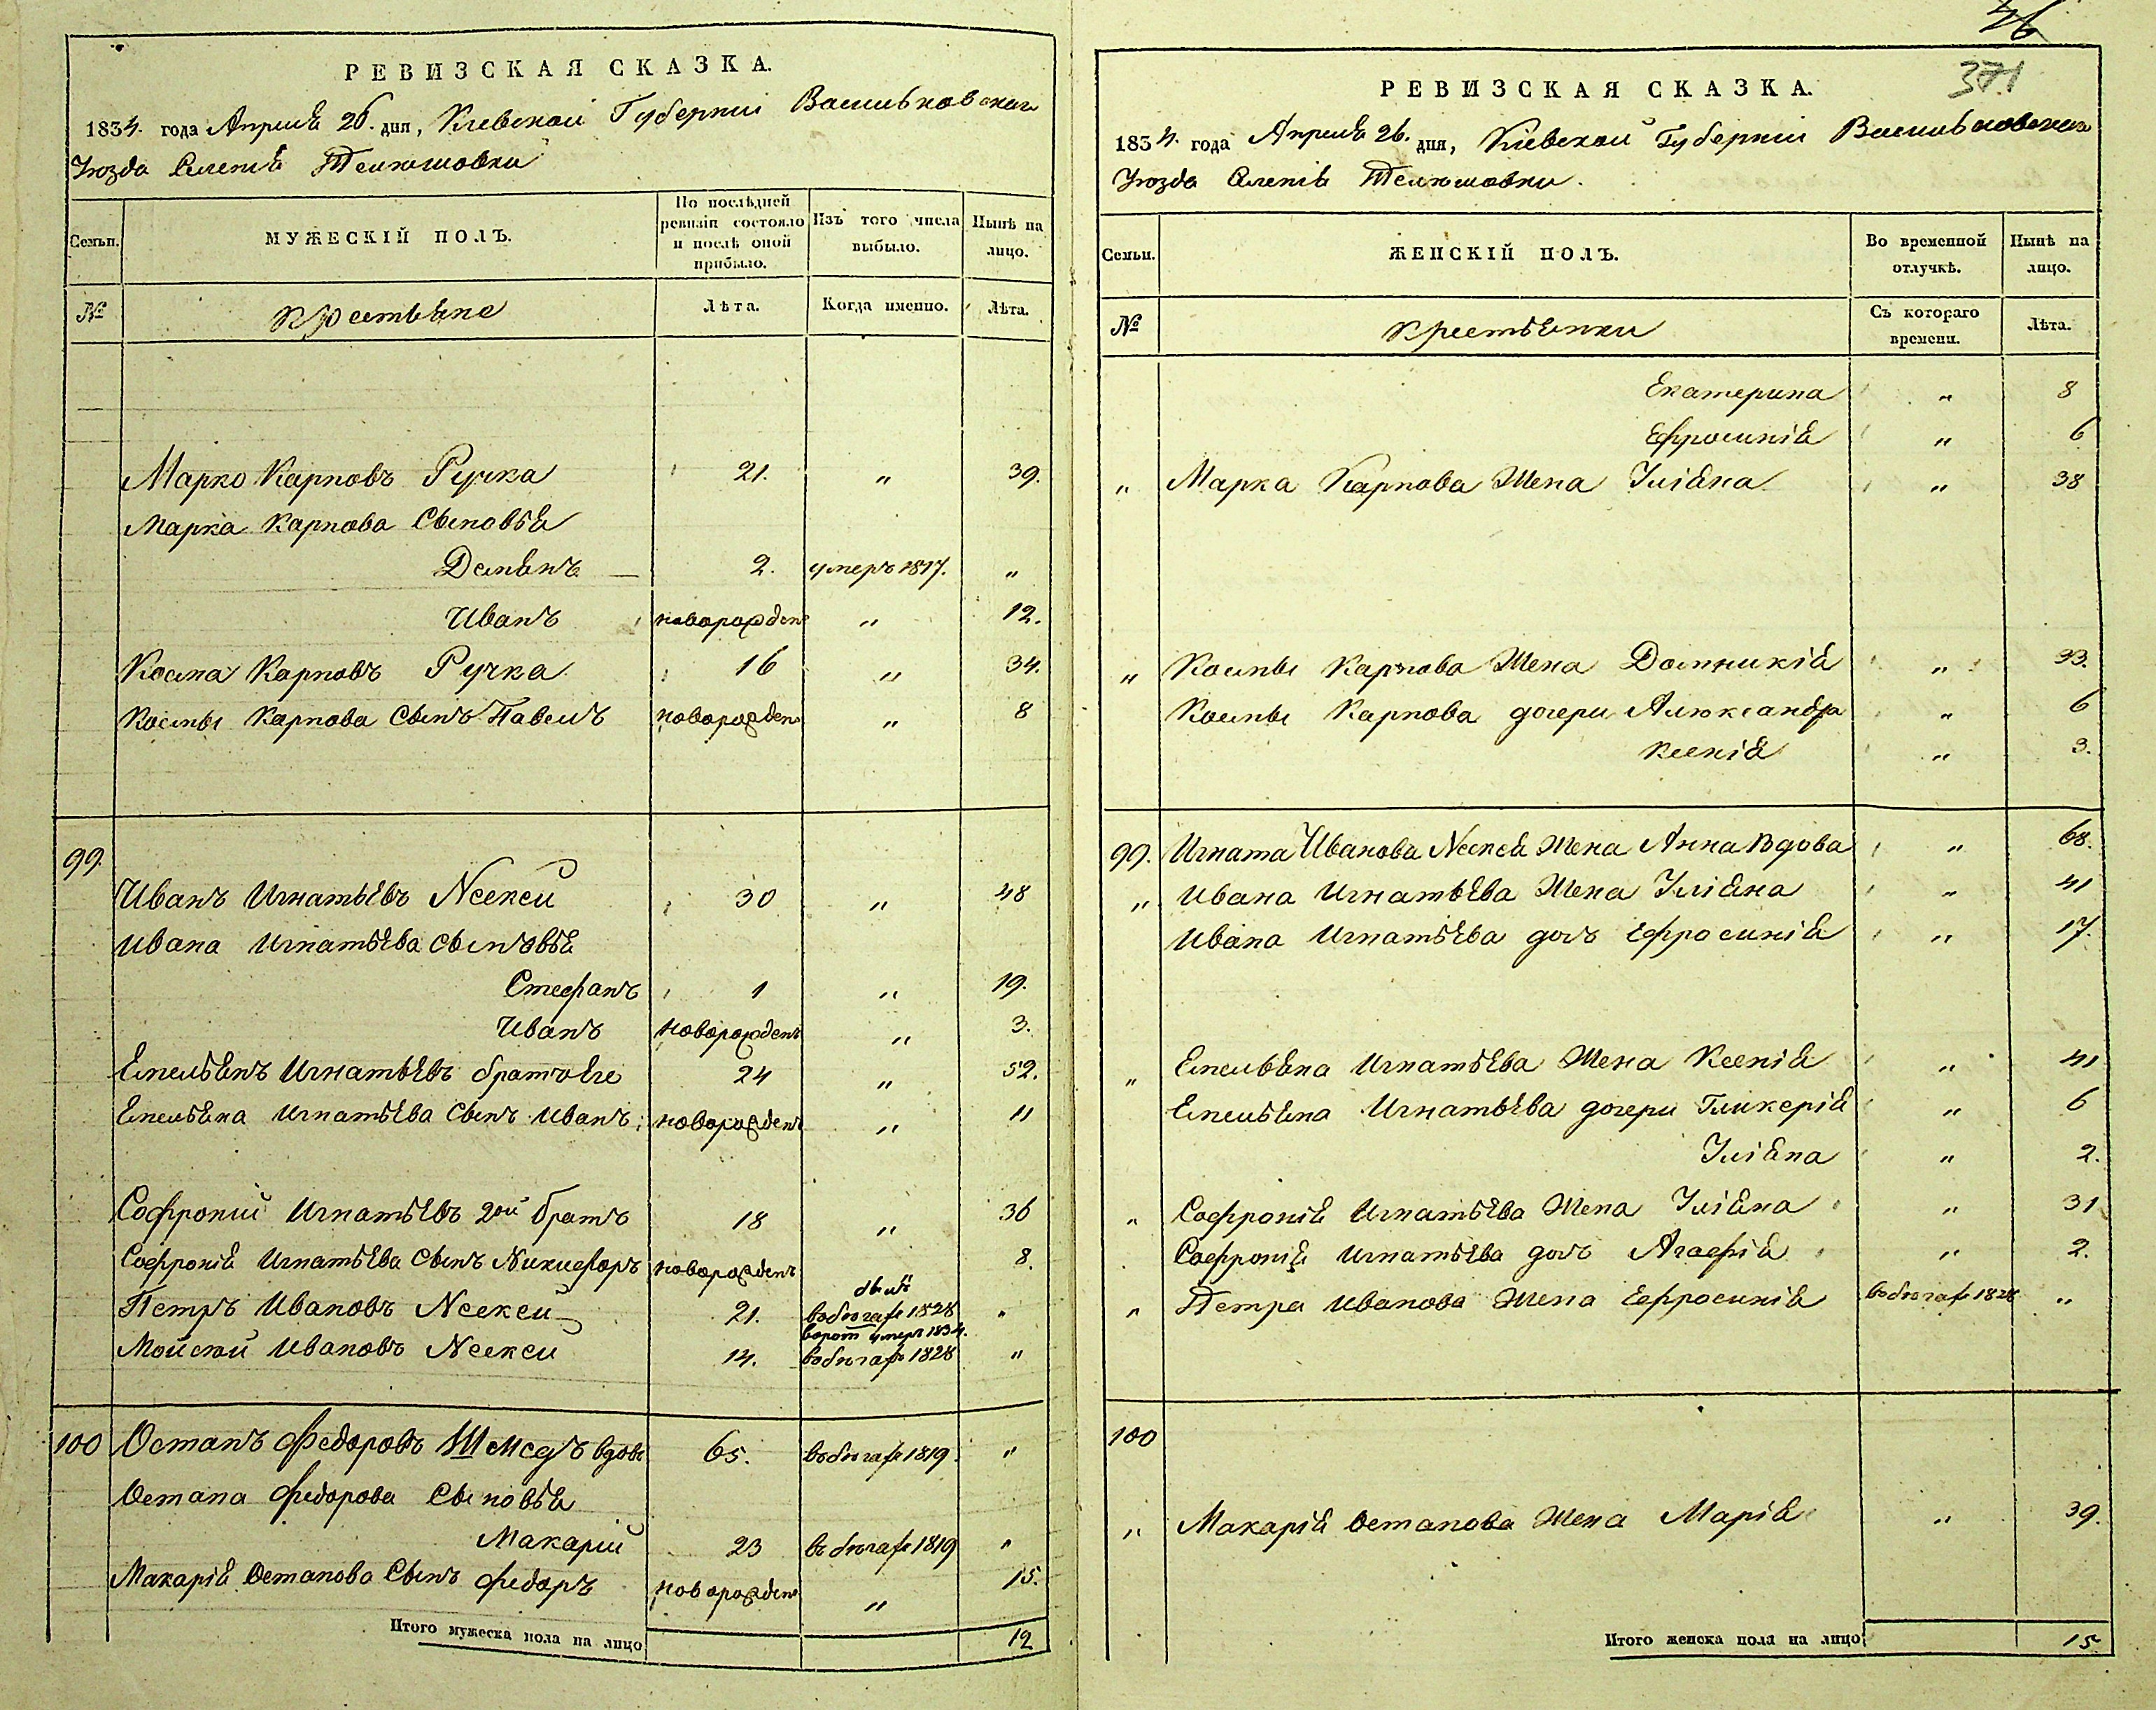 РЕВИЗСКАЯ СКАЗКА.
1834. года Апреля 26. дня, Киевской Губернии Васильковскаго
Уюзда Селенія Телюшовки
Семьи.
МУЖЕСКІЙ ПОЛЪ.
По послѣдней ревизіи состояло и послѣ оной прибыло.
Изъ того числа выбыло.
Нынѣ на лицо.
№
Крестьяне
Лѣта.
Когда именно.
Лѣта.
Марко Карповъ Ручка 21. " 39.
Марка Карпова Сыновья
Демьянъ 2. умеръ 1817. "
Иванъ новорожденъ " 12.
Косма Карповъ Ручка 16 " 34.
Космы Карпова Сынъ Павелъ новорожден " 8
99.
Иванъ Игнатьевъ Лсекси 30 " 48
Ивана Игнатьева сыновья
Стефанъ 1 " 19.
Иванъ новорожденъ " 3.
Емельянъ Игнатьевъ братъ Его 24 " 52.
Емельяна Игнатьева Сынъ Иванъ новорожденъ " 11
Софроній Игнатьевъ 2ой братъ 18 " 36
Софронія Игнатьева Сынъ Никифоръ новорожденъ 8.
Петръ Ивановъ Лсекси 21. былъ вобюгахъ 1828 ворот умеръ 1834. "
Мойсей Ивановъ Лсекси 14. вобюгахъ 1828 "
100 Остапъ Федоровъ вдовъ 65. вобюгахъ 1819. "
Остапа Федорова Сыновья
Макарій 23 вобюгахъ 1819 "
Макарія Остапова Сынъ Федоръ новорожден " 15.
Итого мужеска пола на лицо 12
46
371
РЕВИЗСКАЯ СКАЗКА.
1834. года Апреля 26. дня, Кіевской Губерніи Васильковскаго
Уюзда Селенія Телюшовки.
Семьи.
ЖЕНСКІЙ ПОЛЪ.
Во временной отлучкѣ.
Нынѣ на лицо.
№
Крестьянки
Съ котораго времени.
Лѣта.
Екатерина " 8
Ефросинія " 6
" Марка Карпова Жена Уліяна " 38
" Космы Карпова Жена Домникія " 33.
Космы Карпова дочери Александра " 6
Ксенія " 3.
99. Игната Иванова Лсекся Жена Анна Вдова " 68.
" Ивана Игнатьева Жена Уліяна " 41
Ивана Игнатьева дочь Ефросинія " 17.
" Емельяна Игнатьева Жена Ксенія " 41
Емельяна Игнатьева дочери Гликерія " 6
Уліяна " 2.
" Софронія Игнатьева Жена Уліяна " 31
Софронія Игнатьева дочь Агафія " 2.
" Петра Иванова Жена Ефросинія вобюгахъ 1828 "
100
" Макарія Остапова Жена Марія " 39.
Итого женска пола на лицо 15.